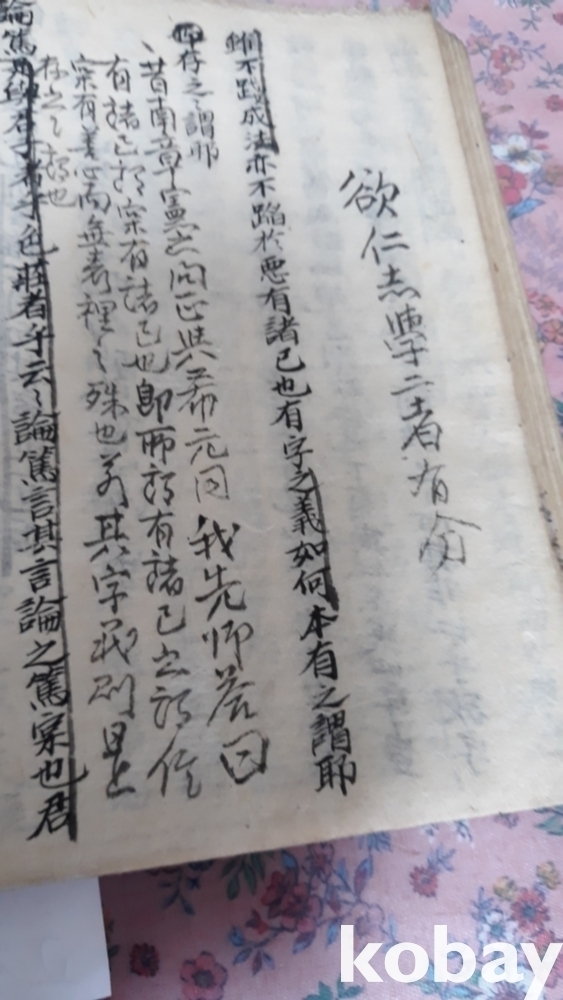 欲仁志學二者有
雖不踐成法亦不陷於惡有諸己也有字之義如何本有之謂耶
存之之謂耶
昔南章憲之問正與希元同我先師答曰
有諸己猶實有諸己也即所謂有諸己之謂信
實有善心而無表裡之殊也若其字義則是
存之之謂也
論篤是與君子者乎色莊者乎云云論篤言其言論之篤實也君
kobay